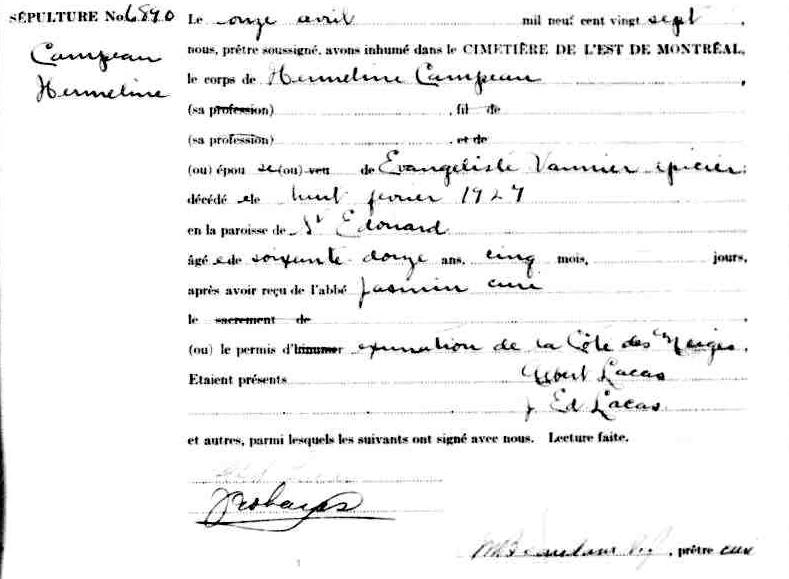 SÉPULTURE No. 6890 Le onze avril mil neuf cent vingt sept,
Campeau
Hermeline
nous, prêtre soussigné, avons inhumé dans le CIMETIÈRE DE L'EST DE MONTRÉAL,
le corps de Hermeline Campeau,
(sa profession), fil de
(sa profession), et de
(ou) épou se (ou) veu de Evangéliste Vannier épicier;
décédé e le huit février 1927
en la paroisse de St Edouard
âgé e de soixante douze ans, cinq mois, jours,
après avoir reçu de l'abbé Jasmin curé
le sacrement de
(ou) le permis d'inhumer exumation de la Côte des Neiges.
Etaient présents Albert Lacas
J Ed Lacas
et autres, parmi lesquels les suivants ont signé avec nous. Lecture faite.
, prêtre curé